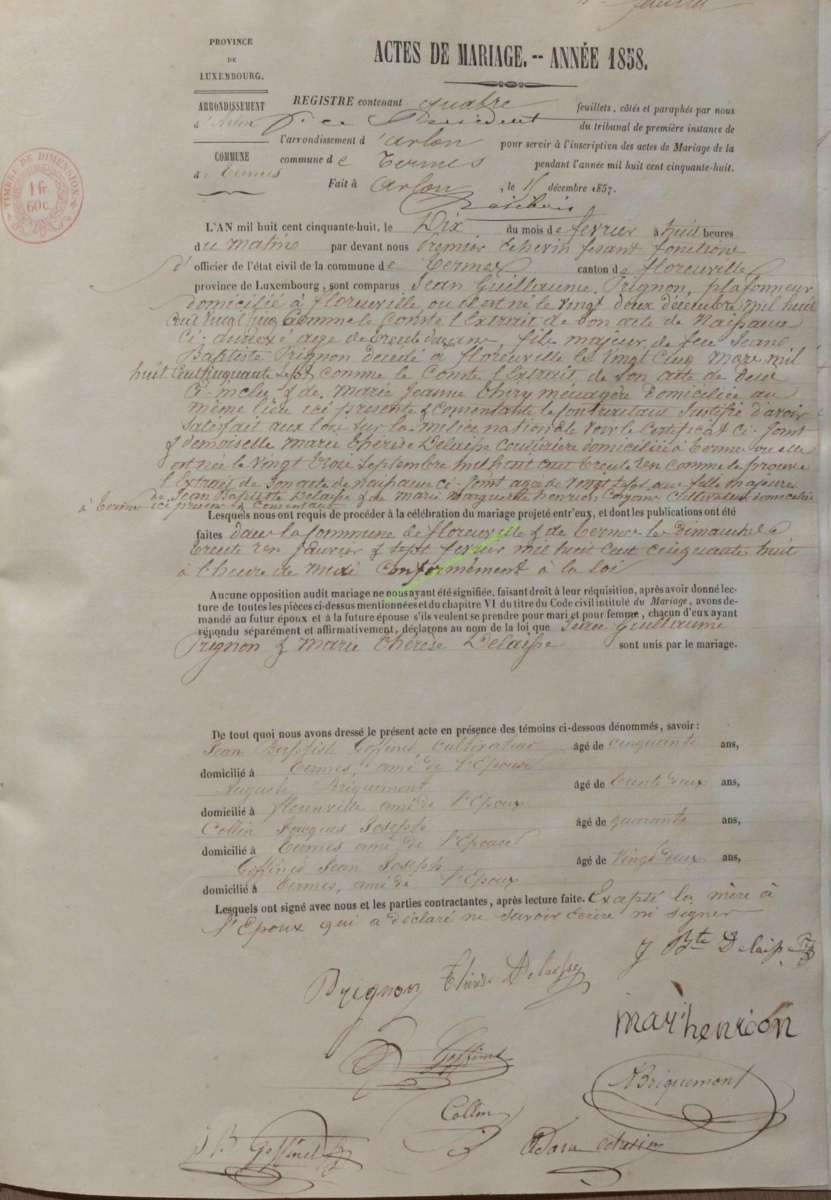 PROVINCE
DE
LUXEMBOURG.
ARRONDISSEMENT
d'Arlon
COMMUNE
de Termes
TIMBRE DE DIMENSION
1 fr
60c.
ACTES DE MARIAGE. -- ANNÉE 1858.
REGISTRE contenant quatre feuillets, côtés et paraphés par nous
Vice Président du tribunal de première instance de
l'arrondissement d'arlon pour servir à l'inscription des actes de Mariage de la
commune de Termes pendant l'année mil huit cent cinquante-huit.
Fait à Arlon, le 15 décembre 1857.
L'AN mil huit cent cinquante-huit, le Dix du mois de fevrier à huit heures
du matin par devant nous Premier Echevin fesant fonctions
d'officier de l'état civil de la commune de Termes canton de florenville
province de Luxembourg, sont comparus Jean Guillaume Prignon, plafonneur
domicilié à florenville ou il est né le vingt deux décembre mil huit
cent vingt cinq comme le Comste l'Extrait de son acte de Naissance
ci-annexé agé de trente deux ans, fils majeur de feu Jean
Baptiste Prignon décédé a florenville le vingt cinq mars mil
huit cent cinquante sept comme le Comste l'Extrait de son acte de
ci-inclus & de Marie Jeanne Thiry ménagère domiciliée au
même lieu ici présente & consentante le justifié d'avoir
satisfait aux lois sur la milice nationale voir le certificat ci-joint
& demoiselle Marie Thérèse Delaisse couturière domiciliée à Termes ou elle
est née le vingt trois Septembre mil huit cent trente en comme le prouve
l'Extrait de son acte de naissance ci-joint agée de vingt sept ans fille majeure
de Jean Baptiste Delaisse & de Marie Marguerite henrion Cultivateurs domiciliés
à Termes ici présents & consentant
Lesquels nous ont requis de procéder à la célébration du mariage projeté entr'eux, et dont les publications ont été
faites dans la Commune de florenville & de Termes les Dimanches
trente en Janvier & sept fevrier mil huit cent cinquante huit
à l'heure de midi Conformément à la loi
Aucune opposition audit mariage ne nous ayant été signifiée, faisant droit à leur réquisition, après avoir donné lec-
ture de toutes les pièces ci-dessus mentionnées et du chapitre VI du titre du Code civil intitulé du Mariage, avons de-
mandé au futur époux et à la future épouse s'ils veulent se prendre pour mari et pour femme, chacun d'eux ayant
répondu séparément et affirmativement, déclarons au nom de la loi que Jean Guillaume
Prignon & Marie Thérèse Delaisse sont unis par le mariage.
De tout quoi nous avons dressé le présent acte en présence des témoins ci-dessous dénommés, savoir:
Jean Baptiste Goffinet, cultivateur âgé de cinquante ans,
domicilié à Termes, ami de l'Epouse
Auguste Briquemont âgé de trente deux ans,
domicilié à florenville ami de l'Epoux
Collin Jacques Joseph âgé de quarante ans,
domicilié à Termes ami de l'Epouse
Goffinet Jean Joseph âgé de vingt deux ans,
domicilié à Termes, ami de l'Epoux
Lesquels ont signé avec nous et les parties contractantes, après lecture faite. Excepté la mère à
l'Epoux qui a déclaré ne savoir écrire ni signer
Prignon Thérèse Delaisse J Bte Delaisse
mar henrion
Goffinet
ABriquemont
Collin
J B Goffinet